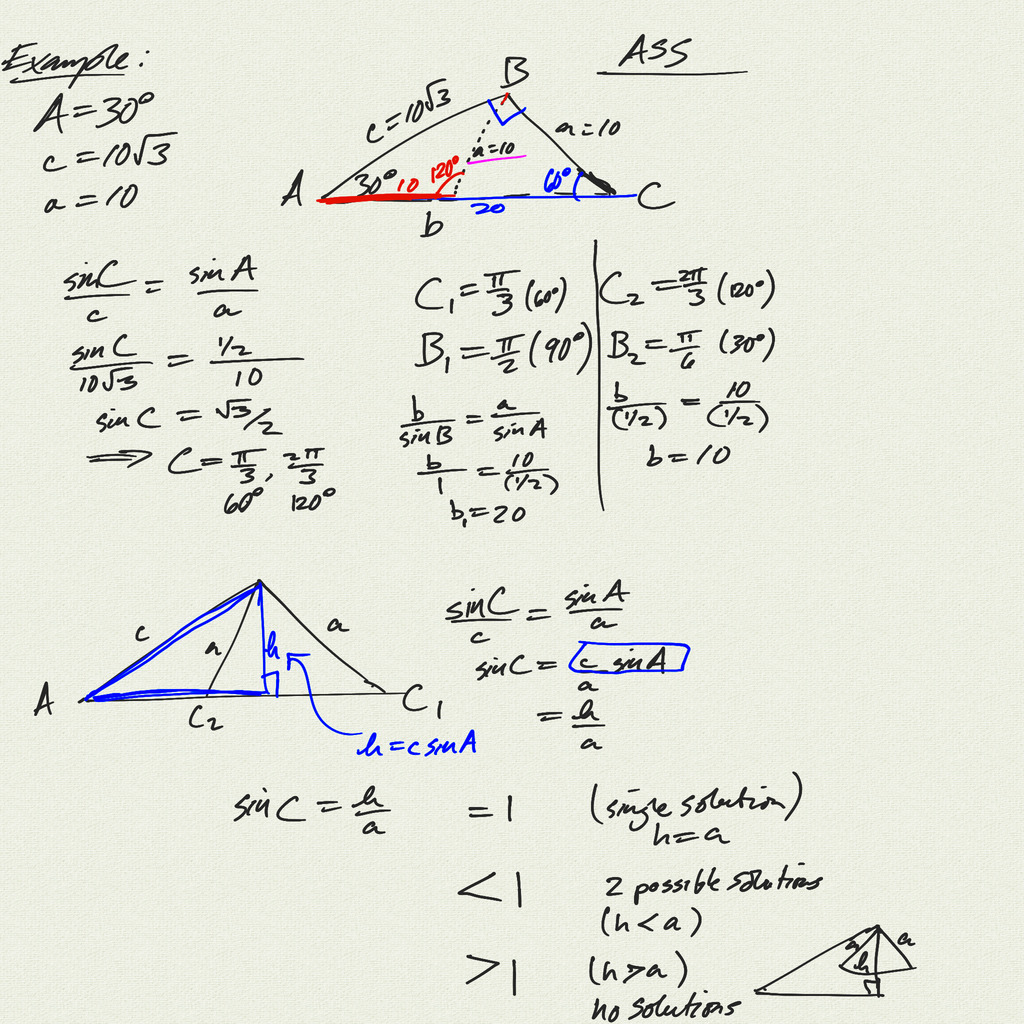 Example:
ASS
A = 30°
c = 10√3
a = 10
B
c = 10√3
a = 10
a = 10
A
30°
10
120°
60°
C
b
20
sinC/c = sinA/a
sinC/10√3 = 1/2/10
sinC = √3/2
⟹ C = π/3, 2π/3
60° 120°
C₁ = π/3 (60°)
B₁ = π/2 (90°)
b/sinB = a/sinA
b/1 = 10/(1/2)
b₁ = 20
C₂ = 2π/3 (120°)
B₂ = π/6 (30°)
b/(1/2) = 10/(1/2)
b = 10
c
a
h
a
A
C₂
C₁
h = c sinA
sinC/c = sinA/a
sinC = c sinA/a
= h/a
sinC = h/a = 1 (single solution)
h = a
< 1 2 possible solutions
(h < a)
> 1 (h > a)
no solutions
a
h
a